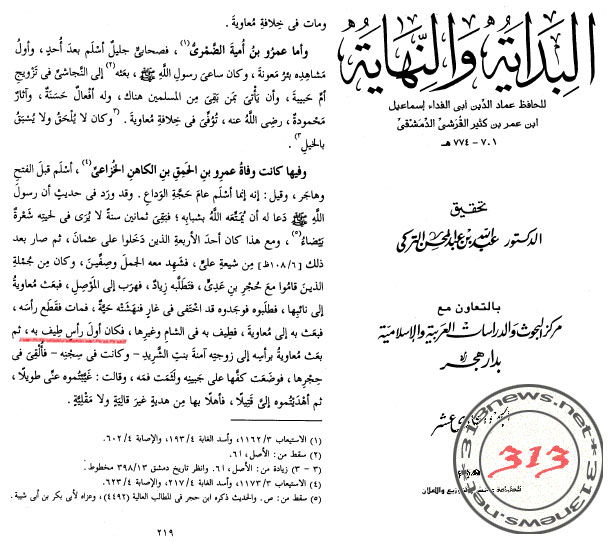 البداية والنهاية
للحافظ عماد الدين ابى الفداء اسماعيل
ابن عمر بن كثير القرشى الدمشقى
٧٠١ - ٧٧٤ هـ
تحقيق
الدكتور عبد الله بن عبد المحسن التركى
بالتعاون مع
مركز البحوث والدراسات العربية والإسلامية
بدار هجر
عشر
313news.net
313
ومات فى خلافة معاوية .
وأما عمرو بن أمية الضَّمْرىُّ(١) ، فصحابىٌّ جليلٌ أسْلَم بعدَ أُحدٍ ، وأولُ
مَشاهِدِه بئرُ مَعونةَ ، وكان ساعىَ رسولِ اللَّهِ ﷺ ، بعَثه(٢) إلى النَّجاشىِّ فى تَزْويجِ
أمِّ حَبيبةَ ، وأن يأتىَ بمَن بَقِىَ مِن المسلمين هناك ، وله أفْعالٌ حَسَنةٌ ، وآثارٌ
مَحْمودةٌ ، رضِى اللَّهُ عنه ، تُوُفِّىَ فى خِلافةِ مُعاويةَ . (٣وكان لا يُلْحَقُ ولا يُسْبَقُ
بالخيلِ٣) .
وفيها كانت وفاةُ عمرِو بنِ الحَمِقِ بنِ الكاهنِ الخُزاعىِّ(٤) ، أسْلَم قبلَ الفتحِ
وهاجَر ، وقيل : إنه إنما أسْلَم عامَ حَجَّةِ الوَداعِ . وقد ورَد فى حديثٍ أن رسولَ
اللَّهِ ﷺ دَعا له أن يُمَتِّعَه اللَّهُ بشبابِه ؛ فبَقِىَ ثمانين سنةً لا يُرَى فى لحيتِه شَعْرةٌ
بَيْضاءُ(٥) ، ومع هذا كان أحدَ الأربعةِ الذين دَخَلوا على عثمانَ ، ثم صار بعدَ
ذلك [١٠٨/٦ظ] مِن شيعةِ علىٍّ ، فشَهِد معه الجملَ وصِفِّينَ ، وكان مِن جُمْلةِ
الذين قاموا مع حُجْرِ بنِ عَدِىٍّ ، فتَطَلَّبه زِيادٌ ، فهرَب إلى المَوْصِلِ ، فبعَث مُعاويةُ
إلى نائبِها ، فطلَبوه فوجَدوه قد اخْتَفى فى غارٍ فنهَشَتْه حَيَّةٌ ، فمات فقَطَع رأسَه ،
فبعَث به إلى مُعاويةَ ، فطِيف به فى الشامِ وغيرِها ، فكان أولَ رأسٍ طِيف به ، ثم
بعَث مُعاويةُ برأسِه إلى زوجتِه آمنةَ بنتِ الشَّريدِ - وكانت فى سِجْنِه - فأُلْقِىَ فى
حِجْرِها ، فوضَعَت كفَّها على جَبينِه ولَثَمت فمَه ، وقالت : غَيَّبْتُموه عنى طويلًا ،
ثم أهْدَيْتُموه إلىَّ قَتيلًا ، فأهلًا بها مِن هديةٍ غيرَ قاليةٍ ولا مَقْلِيَّةٍ .
(١) الاستيعاب ١١٦٢/٣، وأسد الغابة ١٩٣/٤، والإصابة ٦٠٢/٤.
(٢) سقط من : الأصل ، ٦١.
(٣ - ٣) زيادة من : الأصل ، ٦١. وانظر تاريخ دمشق ٣٩٨/١٣ مخطوط .
(٤) الاستيعاب ١١٧٣/٣، وأسد الغابة ٢١٧/٤، والإصابة ٦٢٣/٤.
(٥) سقط من : ص . والحديث ذكره ابن حجر فى المطالب العالية (٤٤٩٢) ، وعزاه لأبى بكر بن أبى شيبة .
٢١٩